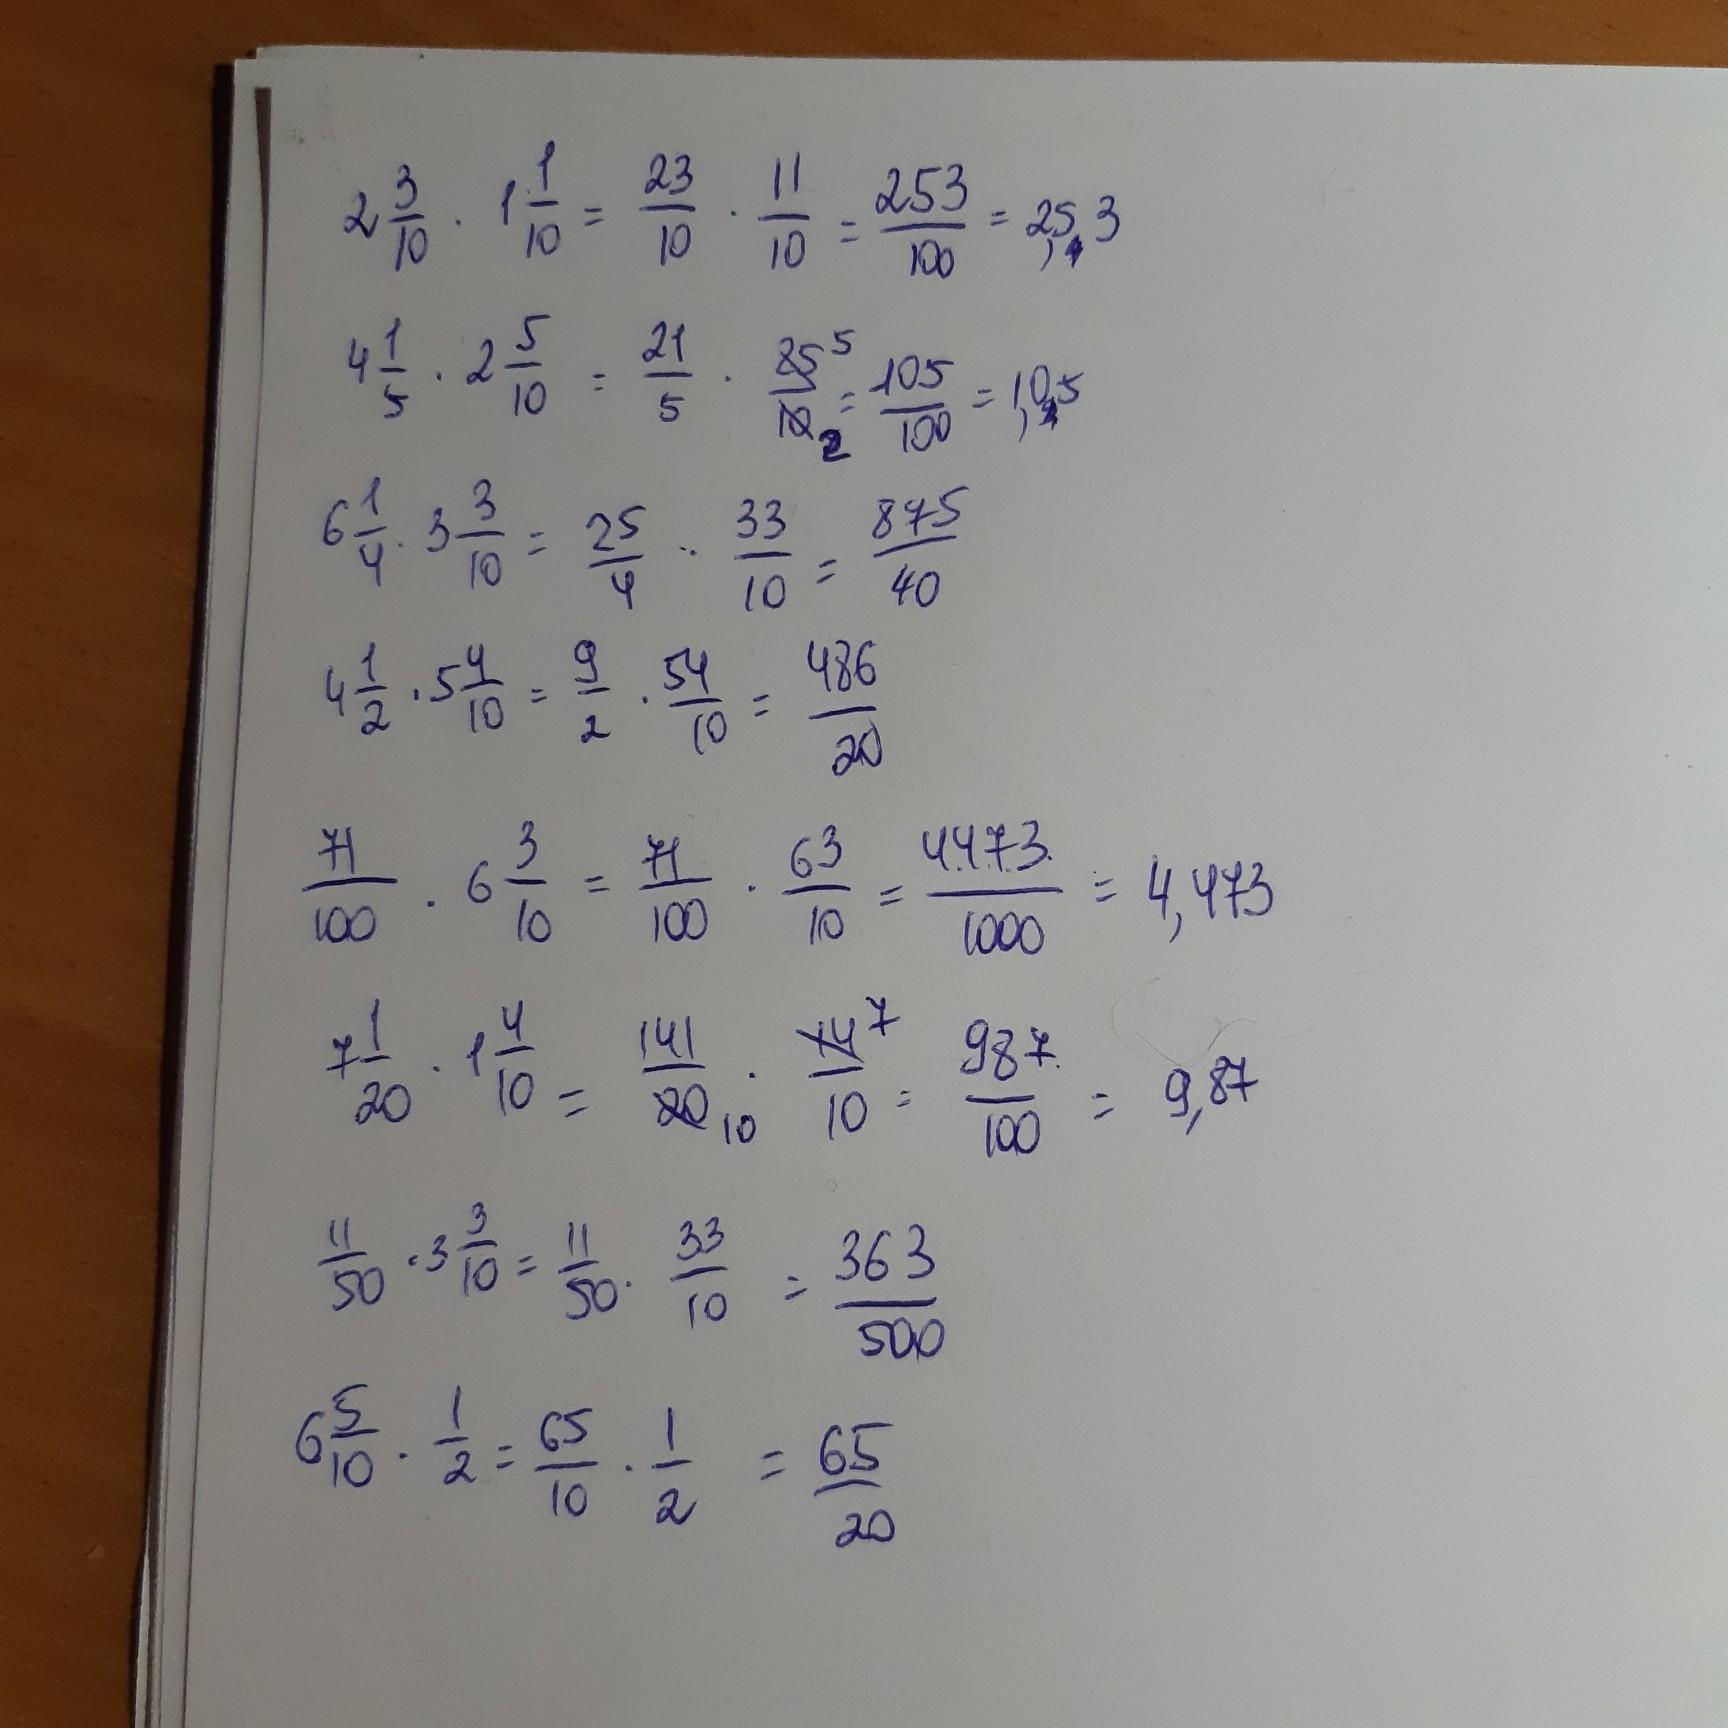 2 3/10 · 1 1/10 = 23/10 · 11/10 = 253/100 = 2,53
4 1/5 · 2 5/10 = 21/5 · 25/10 5 2 = 105/100 = 1,05
6 1/4 · 3 3/10 = 25/4 · 33/10 = 875/40
4 1/2 · 5 4/10 = 9/2 · 54/10 = 486/20
71/100 · 6 3/10 = 71/100 · 63/10 = 4473/1000 = 4,473
7 1/20 · 1 4/10 = 141/20 10 · 14/10 7 = 987/100 = 9,87
11/50 · 3 3/10 = 11/50 · 33/10 = 363/500
6 5/10 · 1/2 = 65/10 · 1/2 = 65/20